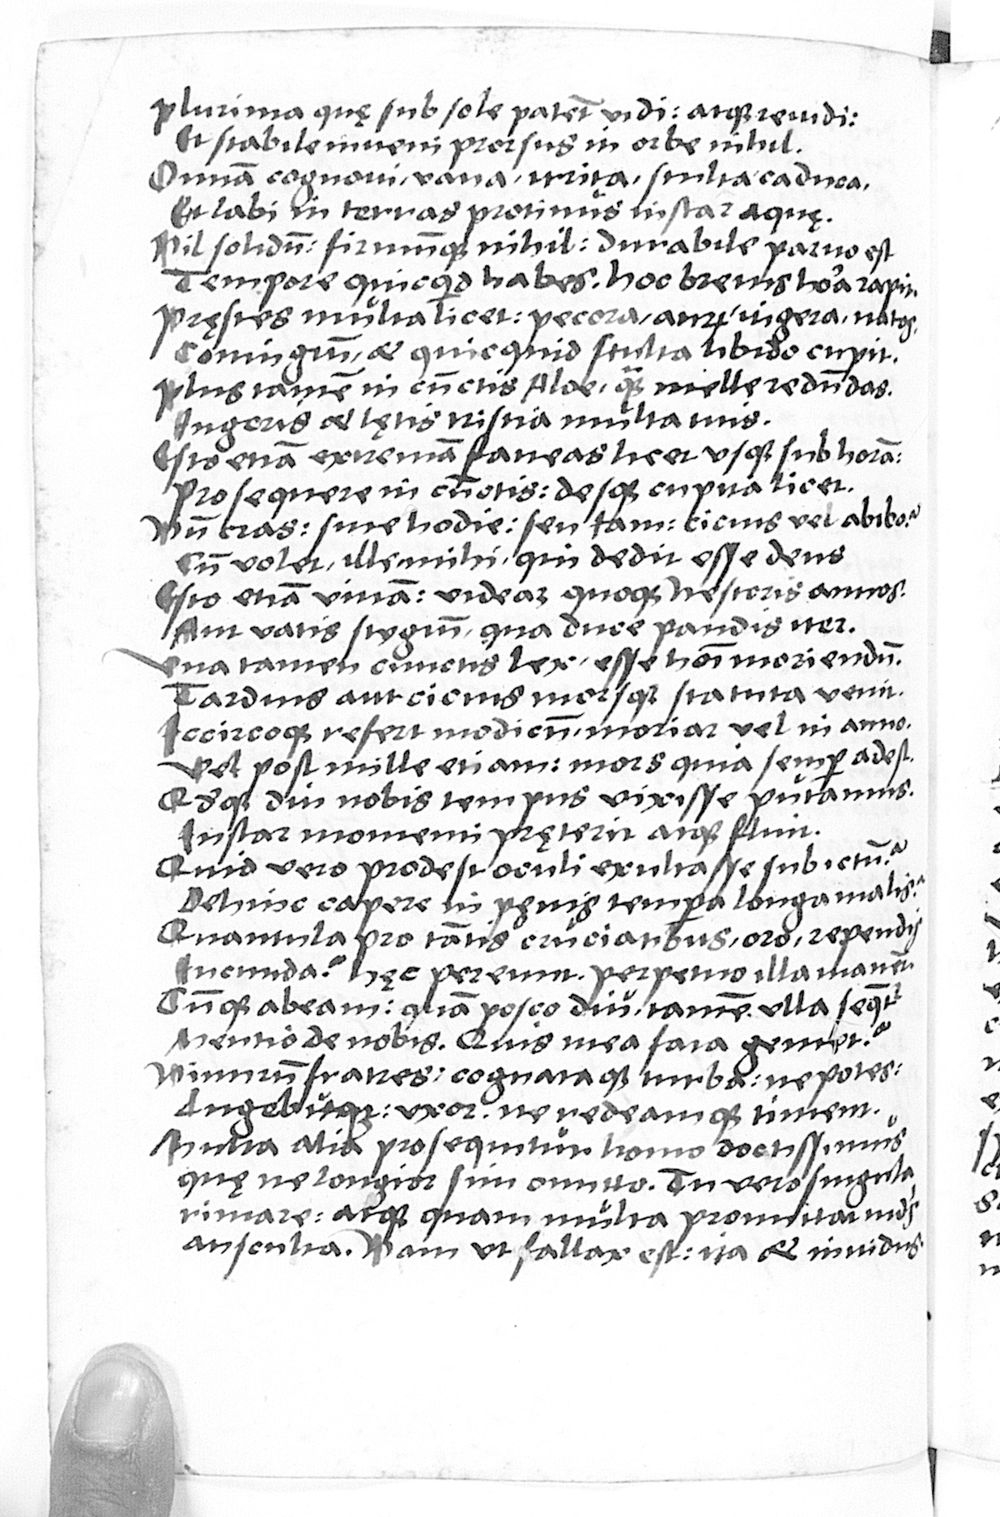 Plurima quę sub sole patēt vidi: atqꝫ reuidi:
Et stabile inueni prorsus in orbe nihil.
Omniā cognoui, vana, irrita, stulta, caduca,
Et labi in terras protinus instar aquę.
Nil solidū: firmūqꝫ nihil: durabile paruo est
Tempore quicqd habes. hoc breuis hora rapit.
Pręstes multa licet: pecora, aurū, iugera, natos,
Coniugiū, & quicquid stulta libido cupit.
Plus tamē in cūctis Aloe, qꝫ melle redūdas.
Ingeris & lętis tristia multa tuis.
Esto etiā extremā faueas licet vsqꝫ sub horā:
Prosequere in cūctis: desqꝫ cupita licet.
Nū cras: siue hodie: seu iam: cicius vel abibo?
Cū volet, ille mihi, qui dedit esse deus
Esto etiā viuā: videaꝫ quoqꝫ Nestoris annos.
Aut vatis stygiū, qua duce pandis iter.
Vna tamen cunctis lex, esse hoī moriendū.
Tardius aut cicius morsqꝫ statuta venit.
Iccircoqꝫ refert modicū, moriar vel in anno.
Vel post mille etiam: mors quia semꝑ adest.
Qdqꝫ diu nobis tempus vixisse putamus.
Instar momenti pręterit atqꝫ fluit.
Quid vero prodest oculi exultasse sub ictū?
Dehinc capere in pęnis tempora longa malis?
Quantula pro tātis cruciatibus, oro, rependis
Iucunda? hęc pereunt. perpetuo illa manēt.
Cūqꝫ abeam: quā posco diu, tamē vlla seqt
Mentio de nobis. Quis mea fata gemet?
Nimirū fratres: cognataqꝫ turba: nepotes:
Lugebūtqꝫ: vxor. ne redeamqꝫ timent.
Multa alia prosequitur homo doctissimus
quę ne longior sim omitto. Tu vero singula
rimare: atqꝫ quam multa promittat mūdꝰ
ausculta. Nam vt fallax est: ita & inuidus.